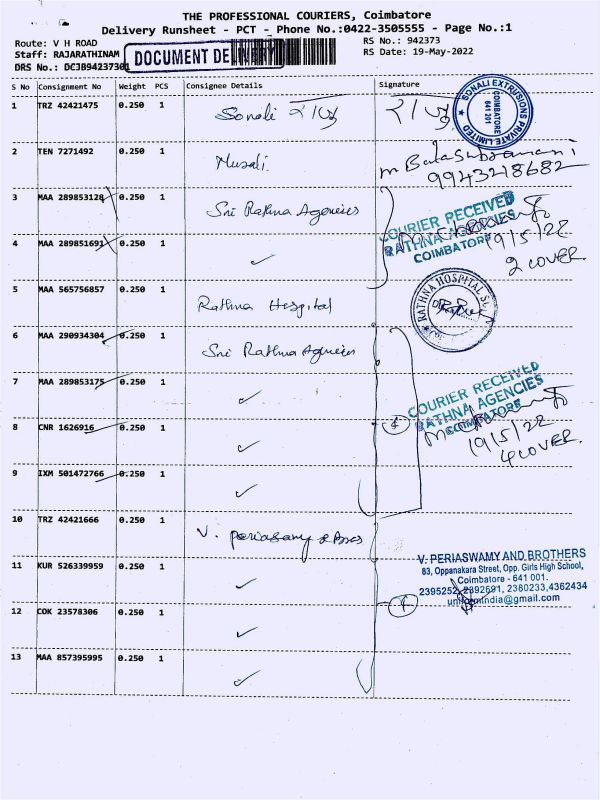 THE PROFESSIONAL COURIERS, Coimbatore
Delivery Runsheet - PCT - Phone No.:0422-3505555 - Page No.:1
Route: V H ROAD RS No.: 942373
Staff: RAJARATHINAM RS Date: 19-May-2022
DRS No.: DCJB94237301 DOCUMENT DELIVERY
S No Consignment No Weight PCS Consignee Details Signature
1 TRZ 42421475 0.250 1 Sonali ராஜு ராஜு
SONALI EXTRUSIONS PRIVATE LIMITED COIMBATORE 641 201
2 TEN 7271492 0.250 1 Murali M Balasubramani
9943218682
3 MAA 289853128 0.250 1 Sri Rathna Agencies
COURIER RECEIVED
RATHNA AGENCIES
COIMBATORE
19/5/22
2 COVER
4 MAA 289851691 0.250 1 ✓
5 MAA 565756857 0.250 1 Rathna Hospital
RATHNA HOSPITAL
6 MAA 290934304 0.250 1 Sri Rathna Agencies
7 MAA 289853175 0.250 1 ✓
COURIER RECEIVED
RATHNA AGENCIES
COIMBATORE
19/5/22
4 COVER
8 CNR 1626916 0.250 1 ✓
9 IXM 501472766 0.250 1 ✓
10 TRZ 42421666 0.250 1 V. Periasamy & Bros
11 KUR 526339959 0.250 1 ✓
V. PERIASWAMY AND BROTHERS
83, Oppanakara Street, Opp. Girls High School,
Coimbatore - 641 001.
2395252, 2392691, 2380233, 4362434
uniformindia@gmail.com
12 COK 23578306 0.250 1 ✓
13 MAA 857395995 0.250 1 ✓